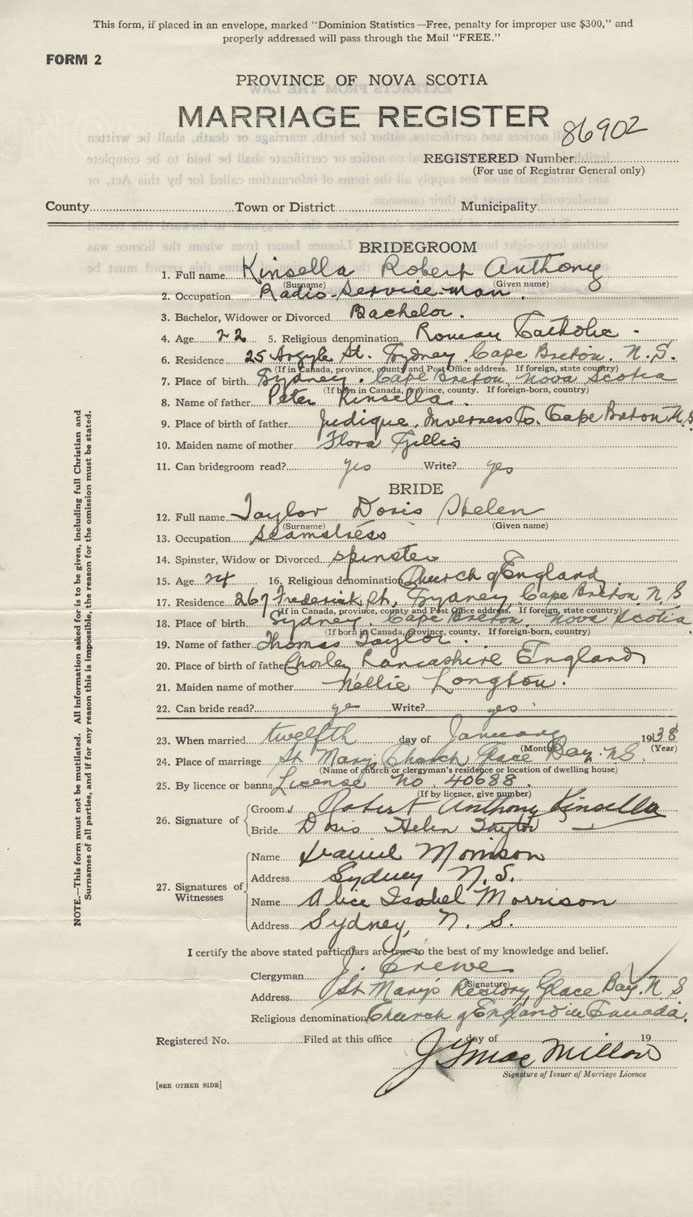 This form, if placed in an envelope, marked "Dominion Statistics—Free, penalty for improper use $300," and
properly addressed will pass through the Mail "FREE."
FORM 2
PROVINCE OF NOVA SCOTIA
MARRIAGE REGISTER
86902
REGISTERED Number
(For use of Registrar General only)
County Town or District Municipality
BRIDEGROOM
1. Full name Kinsella Robert Anthony
(Surname) (Given name)
2. Occupation Radio-Service-man.
3. Bachelor, Widower or Divorced Bachelor.
4. Age 22 5. Religious denomination Roman Catholic.
6. Residence 25 Argyle St. Sydney. Cape Breton. N.S.
(If in Canada, province, county and Post Office address. If foreign, state country)
7. Place of birth Sydney. Cape Breton. Nova Scotia
(If born in Canada, province, county. If foreign-born, country)
8. Name of father Peter Kinsella
9. Place of birth of father Judique. Inverness Co. Cape Breton N.S.
10. Maiden name of mother Flora Gillis
11. Can bridegroom read? yes Write? yes
BRIDE
12. Full name Taylor Doris Helen
(Surname) (Given name)
13. Occupation Seamstress
14. Spinster, Widow or Divorced spinster
15. Age 24 16. Religious denomination Church of England
17. Residence 267 Frederick St, Sydney Cape Breton. N S
(If in Canada, province, county and Post Office address. If foreign, state country)
18. Place of birth Sydney. Cape Breton. Nova Scotia
(If born in Canada, province, county. If foreign-born, country)
19. Name of father Thomas Taylor.
20. Place of birth of father Chorley Lancashire England
21. Maiden name of mother Nellie Longton.
22. Can bride read? yes Write? yes
23. When married twelfth day of January 1938
(Month) (Year)
24. Place of marriage St Marys Church Glace Bay. N.S.
(Name of church or clergyman's residence or location of dwelling house)
25. By licence or banns License No. 40688.
(If by licence, give number)
26. Signature of
Groom Robert Anthony Kinsella
Bride Doris Helen Taylor
27. Signatures of Witnesses
Name Daniel Morrison
Address Sydney N.S.
Name Alice Isabel Morrison
Address Sydney, N. S.
I certify the above stated particulars are true to the best of my knowledge and belief.
Clergyman J. Crewe
(Signature)
Address St Mary's Rectory, Glace Bay. N S
Religious denomination Church of England in Canada.
Registered No. Filed at this office day of 19
J G MacMillan
Signature of Issuer of Marriage Licence
[SEE OTHER SIDE]
NOTE.—This form must not be mutilated. All information asked for is to be given, including full Christian and
Surnames of all parties, and if for any reason this is impossible, the reason for the omission must be stated.